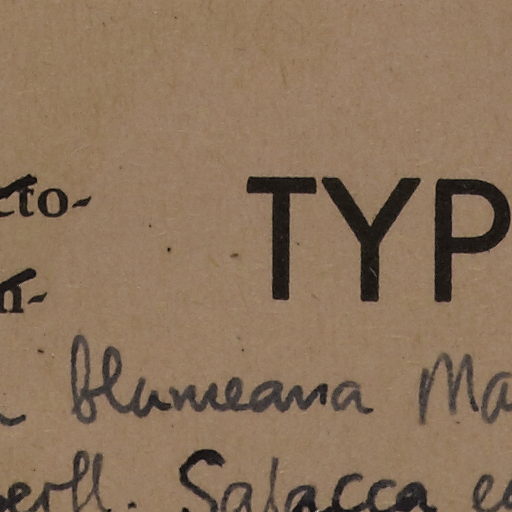 cto-
TYP
n-
blumeana Ma
Salacca